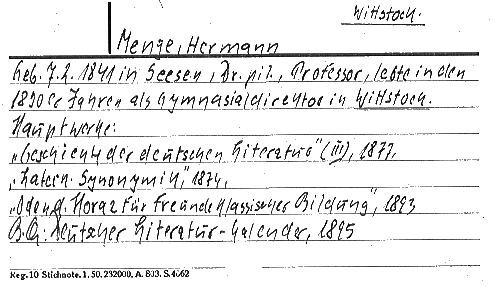 Wittstock.
Menge, Hermann
Geb. 7.2. 1841 in Seesen, Dr. pil., Professor, lebte in den
1890er Jahren als Gymnasialdirektor in Wittstock.
Hauptwerke:
„Geschichte der deutschen Literatur" (III), 1877,
„Latein. Synonymik", 1874,
„Oden d. Horaz für Freunde klassischer Bildung", 1893
B.Q.: Deutscher Literatur-Kalender, 1895
Reg. 10 Stichnote. 1. 50. 232000, A. 803. S. 4662